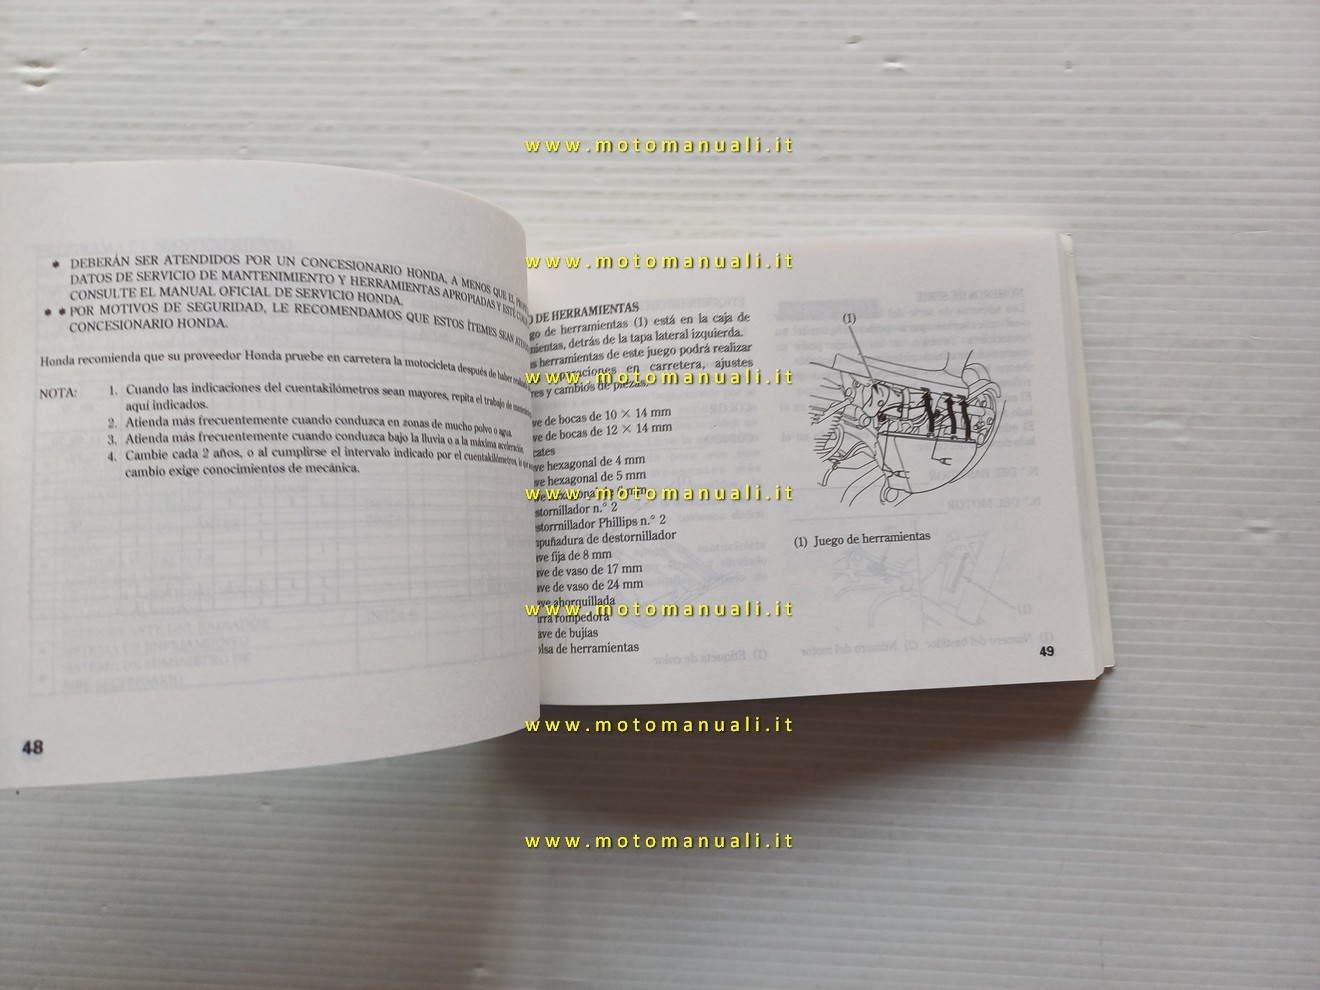 www.motomanuali.it
* DEBERÁN SER ATENDIDOS POR UN CONCESIONARIO HONDA, A MENOS QUE EL
DATOS DE SERVICIO DE MANTENIMIENTO Y HERRAMIENTAS APROPIADAS Y ESTÉ
CONSULTE EL MANUAL OFICIAL DE SERVICIO HONDA.
* * POR MOTIVOS DE SEGURIDAD, LE RECOMENDAMOS QUE ESTOS ÍTEMES SEAN
CONCESIONARIO HONDA.
Honda recomienda que su proveedor Honda pruebe en carretera la motocicleta después de haber
NOTA: 1. Cuando las indicaciones del cuentakilómetros sean mayores, repita el trabajo de
aquí indicados.
2. Atienda más frecuentemente cuando conduzca en zonas de mucho polvo o agua.
3. Atienda más frecuentemente cuando conduzca bajo la lluvia o a la máxima aceleración.
4. Cambie cada 2 años, o al cumplirse el intervalo indicado por el cuentakilómetros, lo que
cambio exige conocimientos de mecánica.
48
www.motomanuali.it
DE HERRAMIENTAS
go de herramientas (1) está en la caja de
mientas, detrás de la tapa lateral izquierda.
s herramientas de este juego podrá realizar
en carretera, ajustes
www.motomanuali.it
res y cambios de piezas.
ve de bocas de 10 × 14 mm
ve de bocas de 12 × 14 mm
cates
ve hexagonal de 4 mm
ve hexagonal de 5 mm
www.motomanuali.it
stornillador n.° 2
storrnillador Phillips n.° 2
puñadura de destornillador
ave fija de 8 mm
ave de vaso de 17 mm
ave de vaso de 24 mm
ave ahorquillada
www.motomanuali.it
rra rompedora
ave de bujías
olsa de herramientas
(1)
(1) Juego de herramientas
49
www.motomanuali.it
www.motomanuali.it